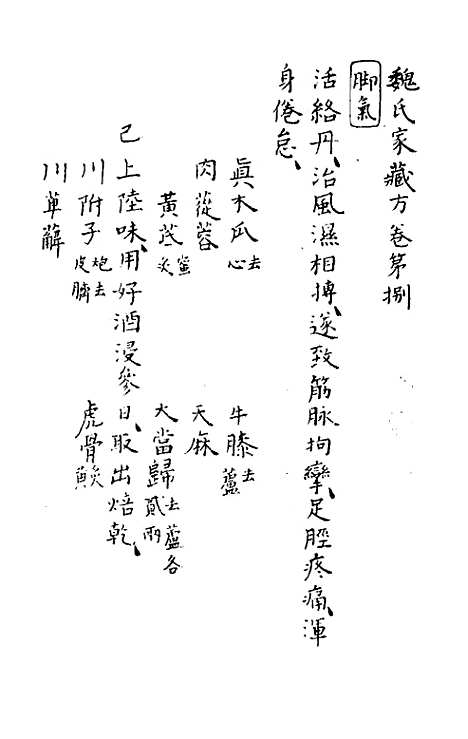 魏氏家藏方卷第捌
脚氣
活絡丹、治風濕相搏、遂致筋脉拘攣、足脛疼痛、渾
身倦怠、
眞木瓜去心　牛膝去蘆
肉蓯蓉　天麻
黃芪蜜炙　大當歸去蘆各貳兩
已上陸味、用好酒浸參日、取出焙乾、
川附子炮去皮臍　虎骨
川萆薢